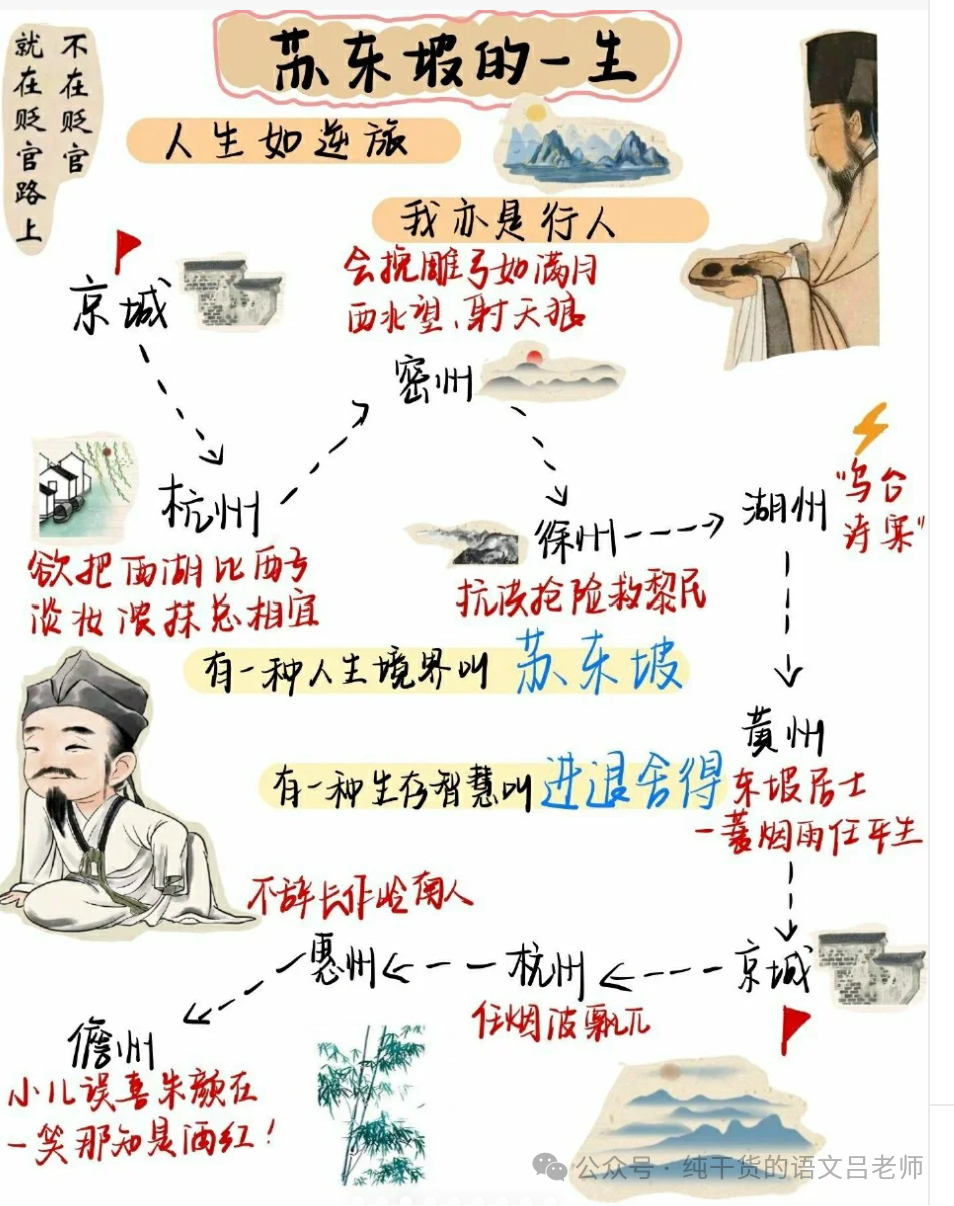 苏东坡的一生
不在贬官
就在贬官路上
人生如逆旅
我亦是行人
京城
会挽雕弓如满月
西北望、射天狼
密州
杭州
欲把西湖比西子
淡妆浓抹总相宜
徐州
抗洪抢险救黎民
湖州
"乌台
诗案"
有一种人生境界叫 苏东坡
有一种生存智慧叫 进退舍得
黄州
东坡居士
一蓑烟雨任平生
京城
杭州
任烟波飘兀
不辞长作岭南人
惠州
儋州
小儿误喜朱颜在
一笑那知是酒红！
公众号·纯干货的语文吕老师